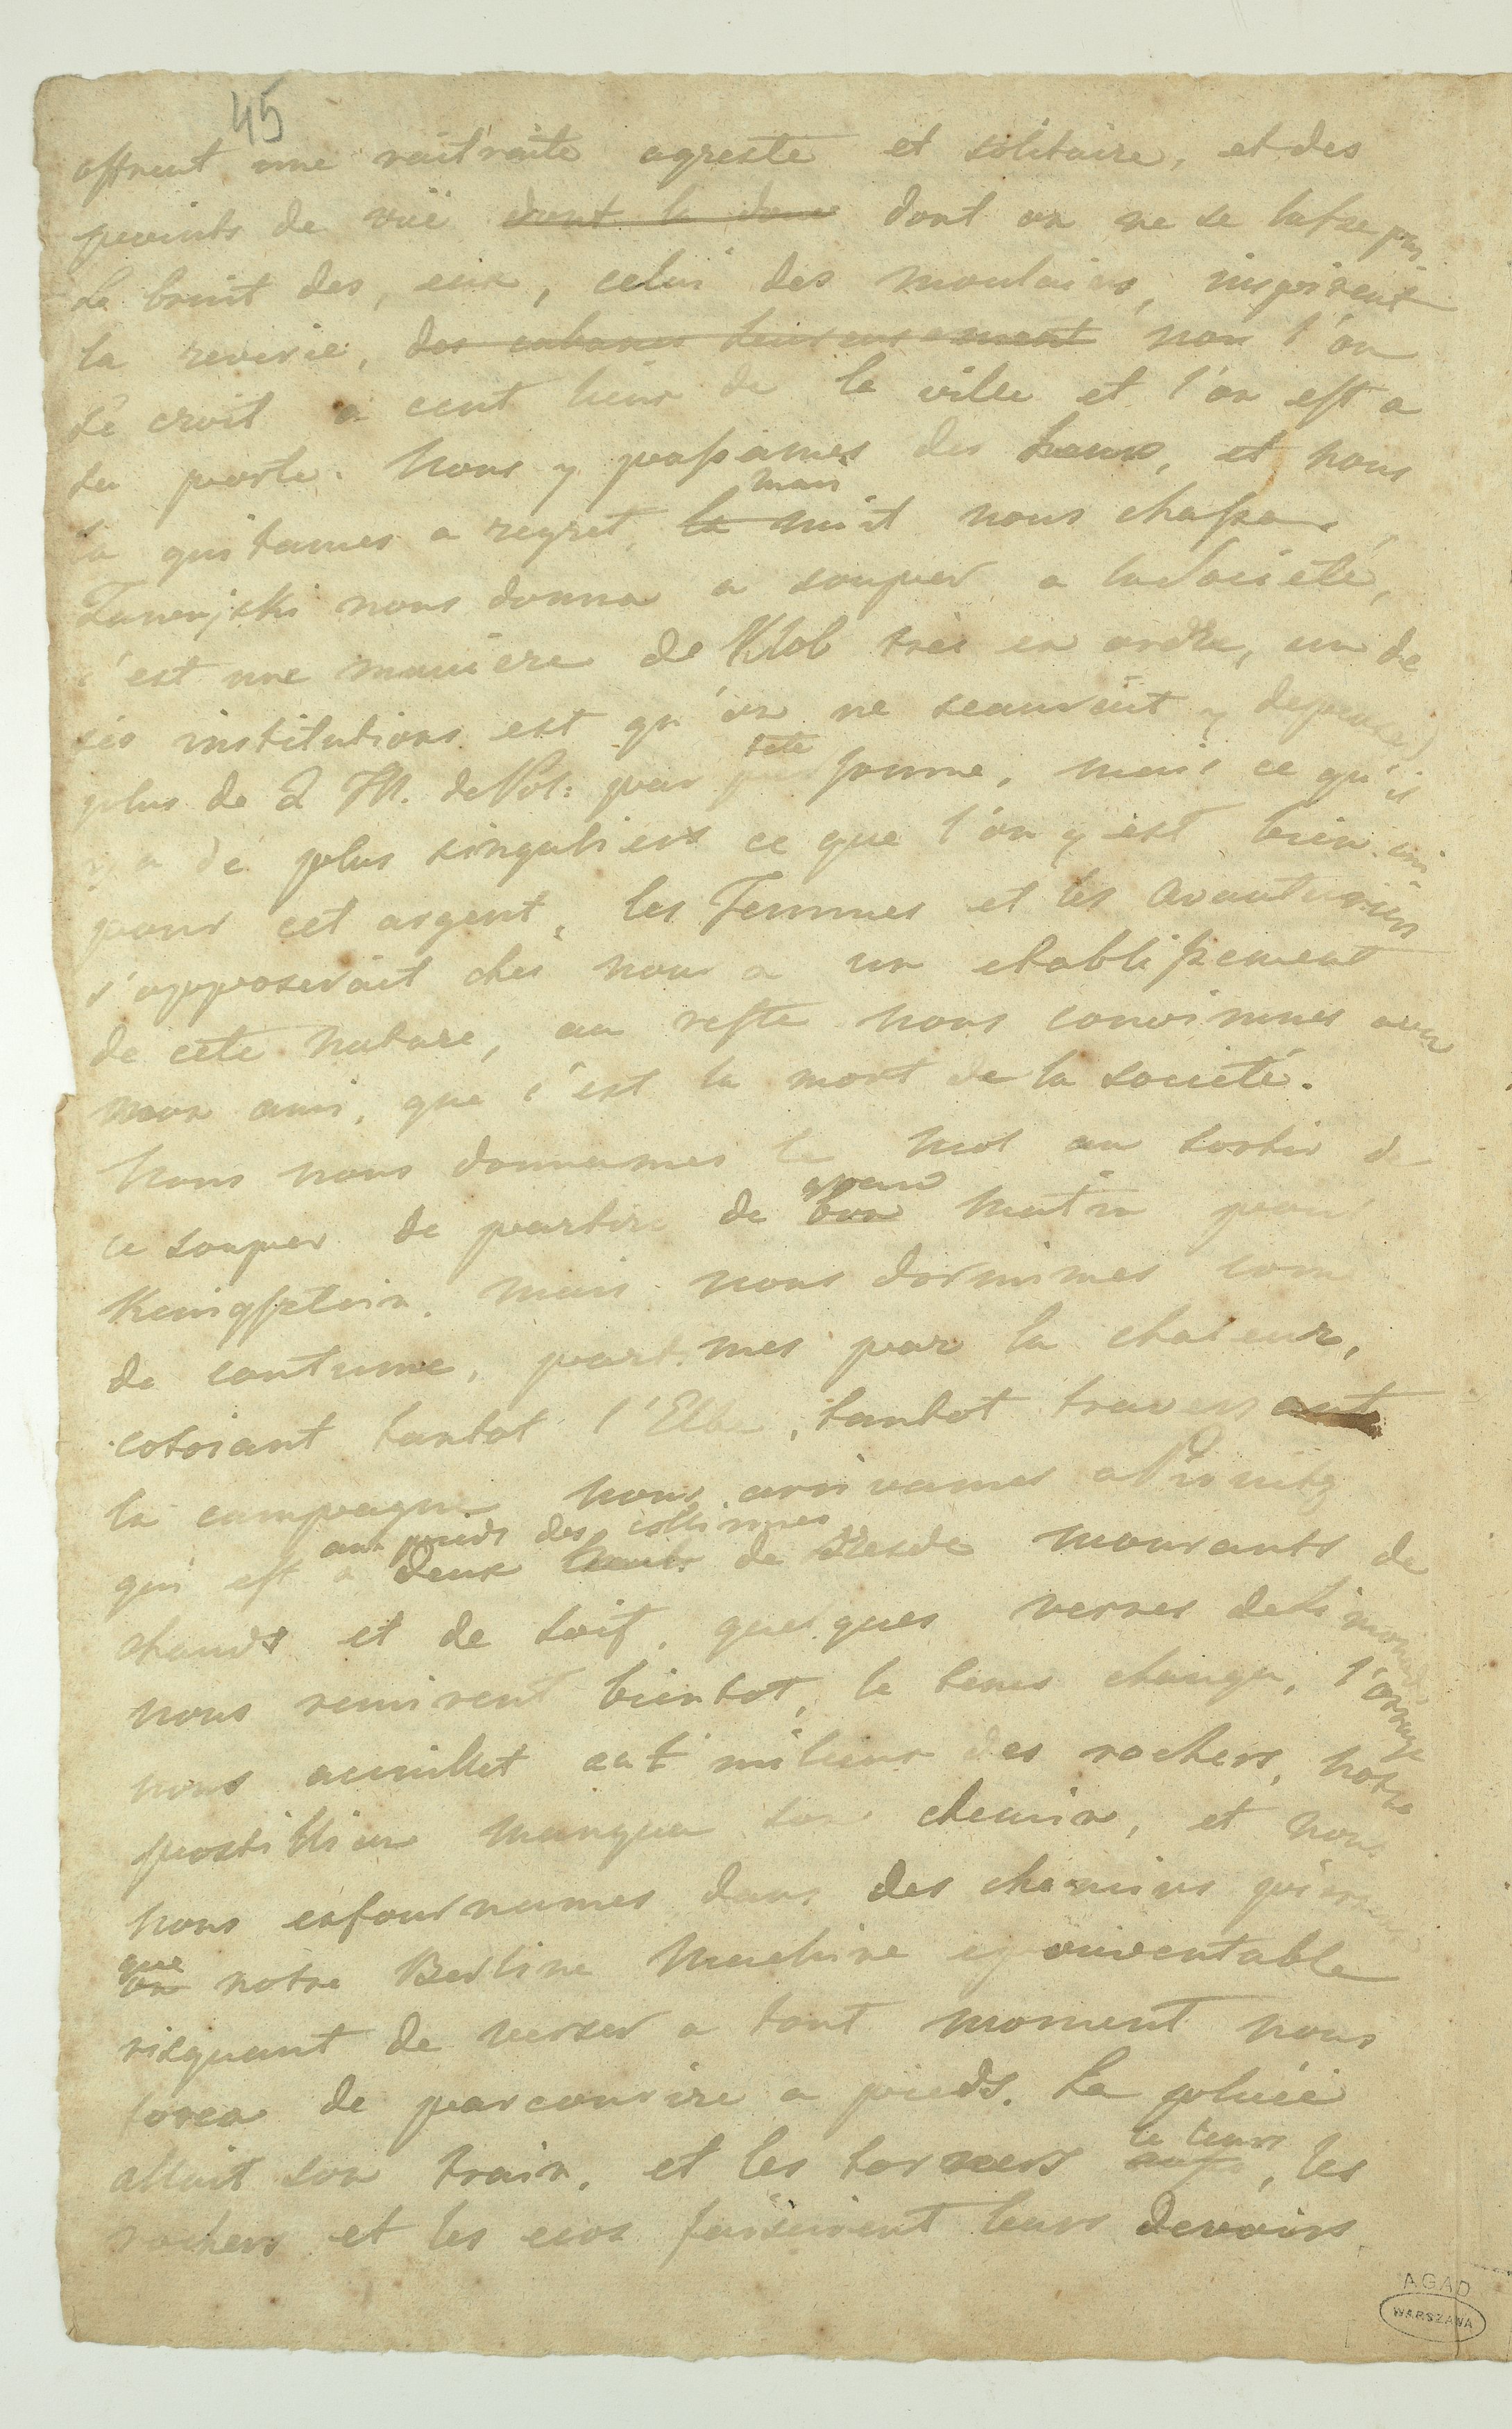 45
offrent une raitraite agreste et solitaire, et des
peoints de vuë dont la dont on ne se lasse pas.
Le bruit des, eux, celui des moulains, inspirent
la reverie, des cabanes heureusement non l'on
sê croit a cent lieux de la ville et l'on est a
sa porte. Nous y passames des heurs, et nous
la quitames a regret, mais
la nuit nous chassa,
nous donna a souper a la Societé,
c'est une maniere de Klob tres en ordre, un de
ses institutions est qu'on ne seauroit y depenser
plus de 2 Th. de Pol: par tete
personne, mais ce qu'il
y a de plus singuliers ce que l'on y est bien
pour cet argent, les Femmes et les avanturiers
s'opposerait ches nous a un etablissement
de cete nature, au reste nous convinmes avec
mon ami, que c'est la mort de la societé.
Nous nous donnames le mot au sortir de
ce souper de partire de grand
bon matin pour
Kenigsstein, mais nous dormimes com
de coutume, partimes par la chaleur,
cotoiant tantot l'Elbe, tantot traversant
la campagne nous arrivames a Pirnitz
aux pieds des collinnes
qui est a deux de Dresde mourants de
chauds et de soif, quelques verres de Limonade
nous remirent bientot, le tems changa, l'orrage
nous acuillet aut milieux des rochers, notre
postillion manqua son chemin, et nous
nous enfournames dans des chemins
que
on notre Berline Machine epouventable
risquant de verser a tout moment nous
forca de parcourire a pieds. La pluié
alloit son train, et les torrens le tems, les
rochers et les ecos faisoient leurs devoirs
AGAD
WARSZAWA